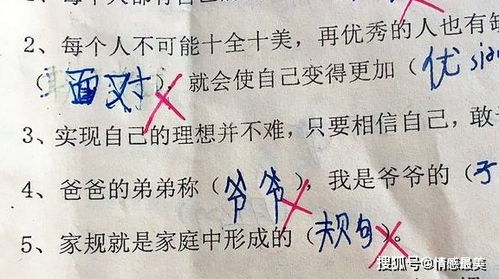 2、每个人不可能十全十美，再优秀的人也有
（面对），就会使自己变得更加（优sian
3、实现自己的理想并不难，只要相信自己，敢
4、爸爸的弟弟称（爷爷），我是爷爷的（子
5、家规就是家庭中形成的（规句）。
搜狐号@情感最美